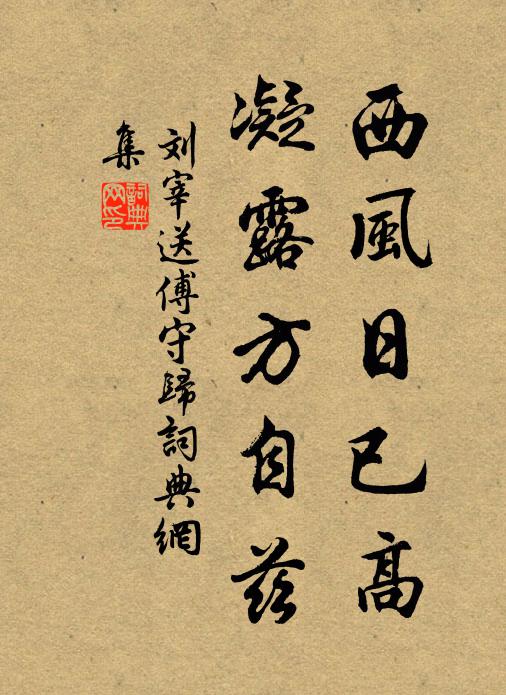 西風日已高
凝露方自茲
刘宰送傅守歸詞典網
集
詞典
网印